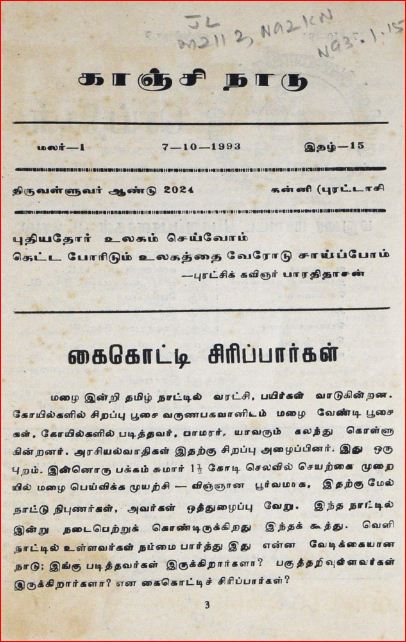 JL
M211 2, N92KN
N93.1.15
காஞ்சி நாடு
மலர்—1 7—10—1993 இதழ்—15
திருவள்ளுவர் ஆண்டு 2024 கன்னி (புரட்டாசி
புதியதோர் உலகம் செய்வோம்
கெட்ட போரிடும் உலகத்தை வேரோடு சாய்ப்போம்
—புரட்சிக் கவிஞர் பாரதிதாசன்
கைகொட்டி சிரிப்பார்கள்
மழை இன்றி தமிழ் நாட்டில் வரட்சி, பயிர்கள் வாடுகின்றன.
கோயில்களில் சிறப்பு பூசை வருணபகவானிடம் மழை வேண்டி பூசை
கள். கோயில்களில் படித்தவர், பாமரர். யாவரும் கலந்து கொள்ளு
கின்றனர். அரசியல்வாதிகள் இதற்கு சிறப்பு அழைப்பினர். இது ஒரு
புறம். இன்னொரு பக்கம் சுமார் 1½ கோடி செலவில் செயற்கை முறை
யில் மழை பெய்விக்க முயற்சி — விஞ்ஞான பூர்வமாக, இதற்கு மேல்
நாட்டு நிபுணர்கள், அவர்கள் ஒத்துழைப்பு வேறு. இந்த நாட்டில்
இன்று நடைபெற்றுக் கொண்டிருக்கிறது இந்தக் கூத்து. வெளி
நாட்டில் உள்ளவர்கள் நம்மை பார்த்து இது என்ன வேடிக்கையான
நாடு; இங்கு படித்தவர்கள் இருக்கிறார்களா? பகுத்தறிவுள்ளவர்கள்
இருக்கிறார்களா? என கைகொட்டிச் சிரிப்பார்கள்?
3